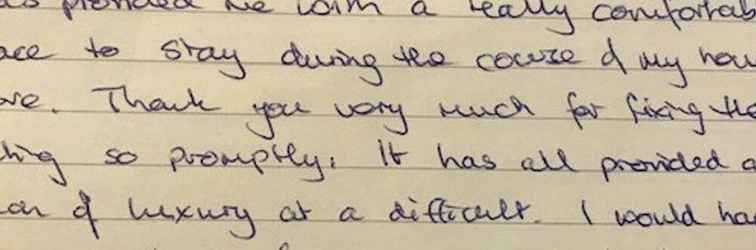 provided me with a really comfortab
ace to stay during the course of my hou
ve. Thank you very much for fixing the
hing so promptly. It has all provided a
on of luxury at a difficult. I would ha